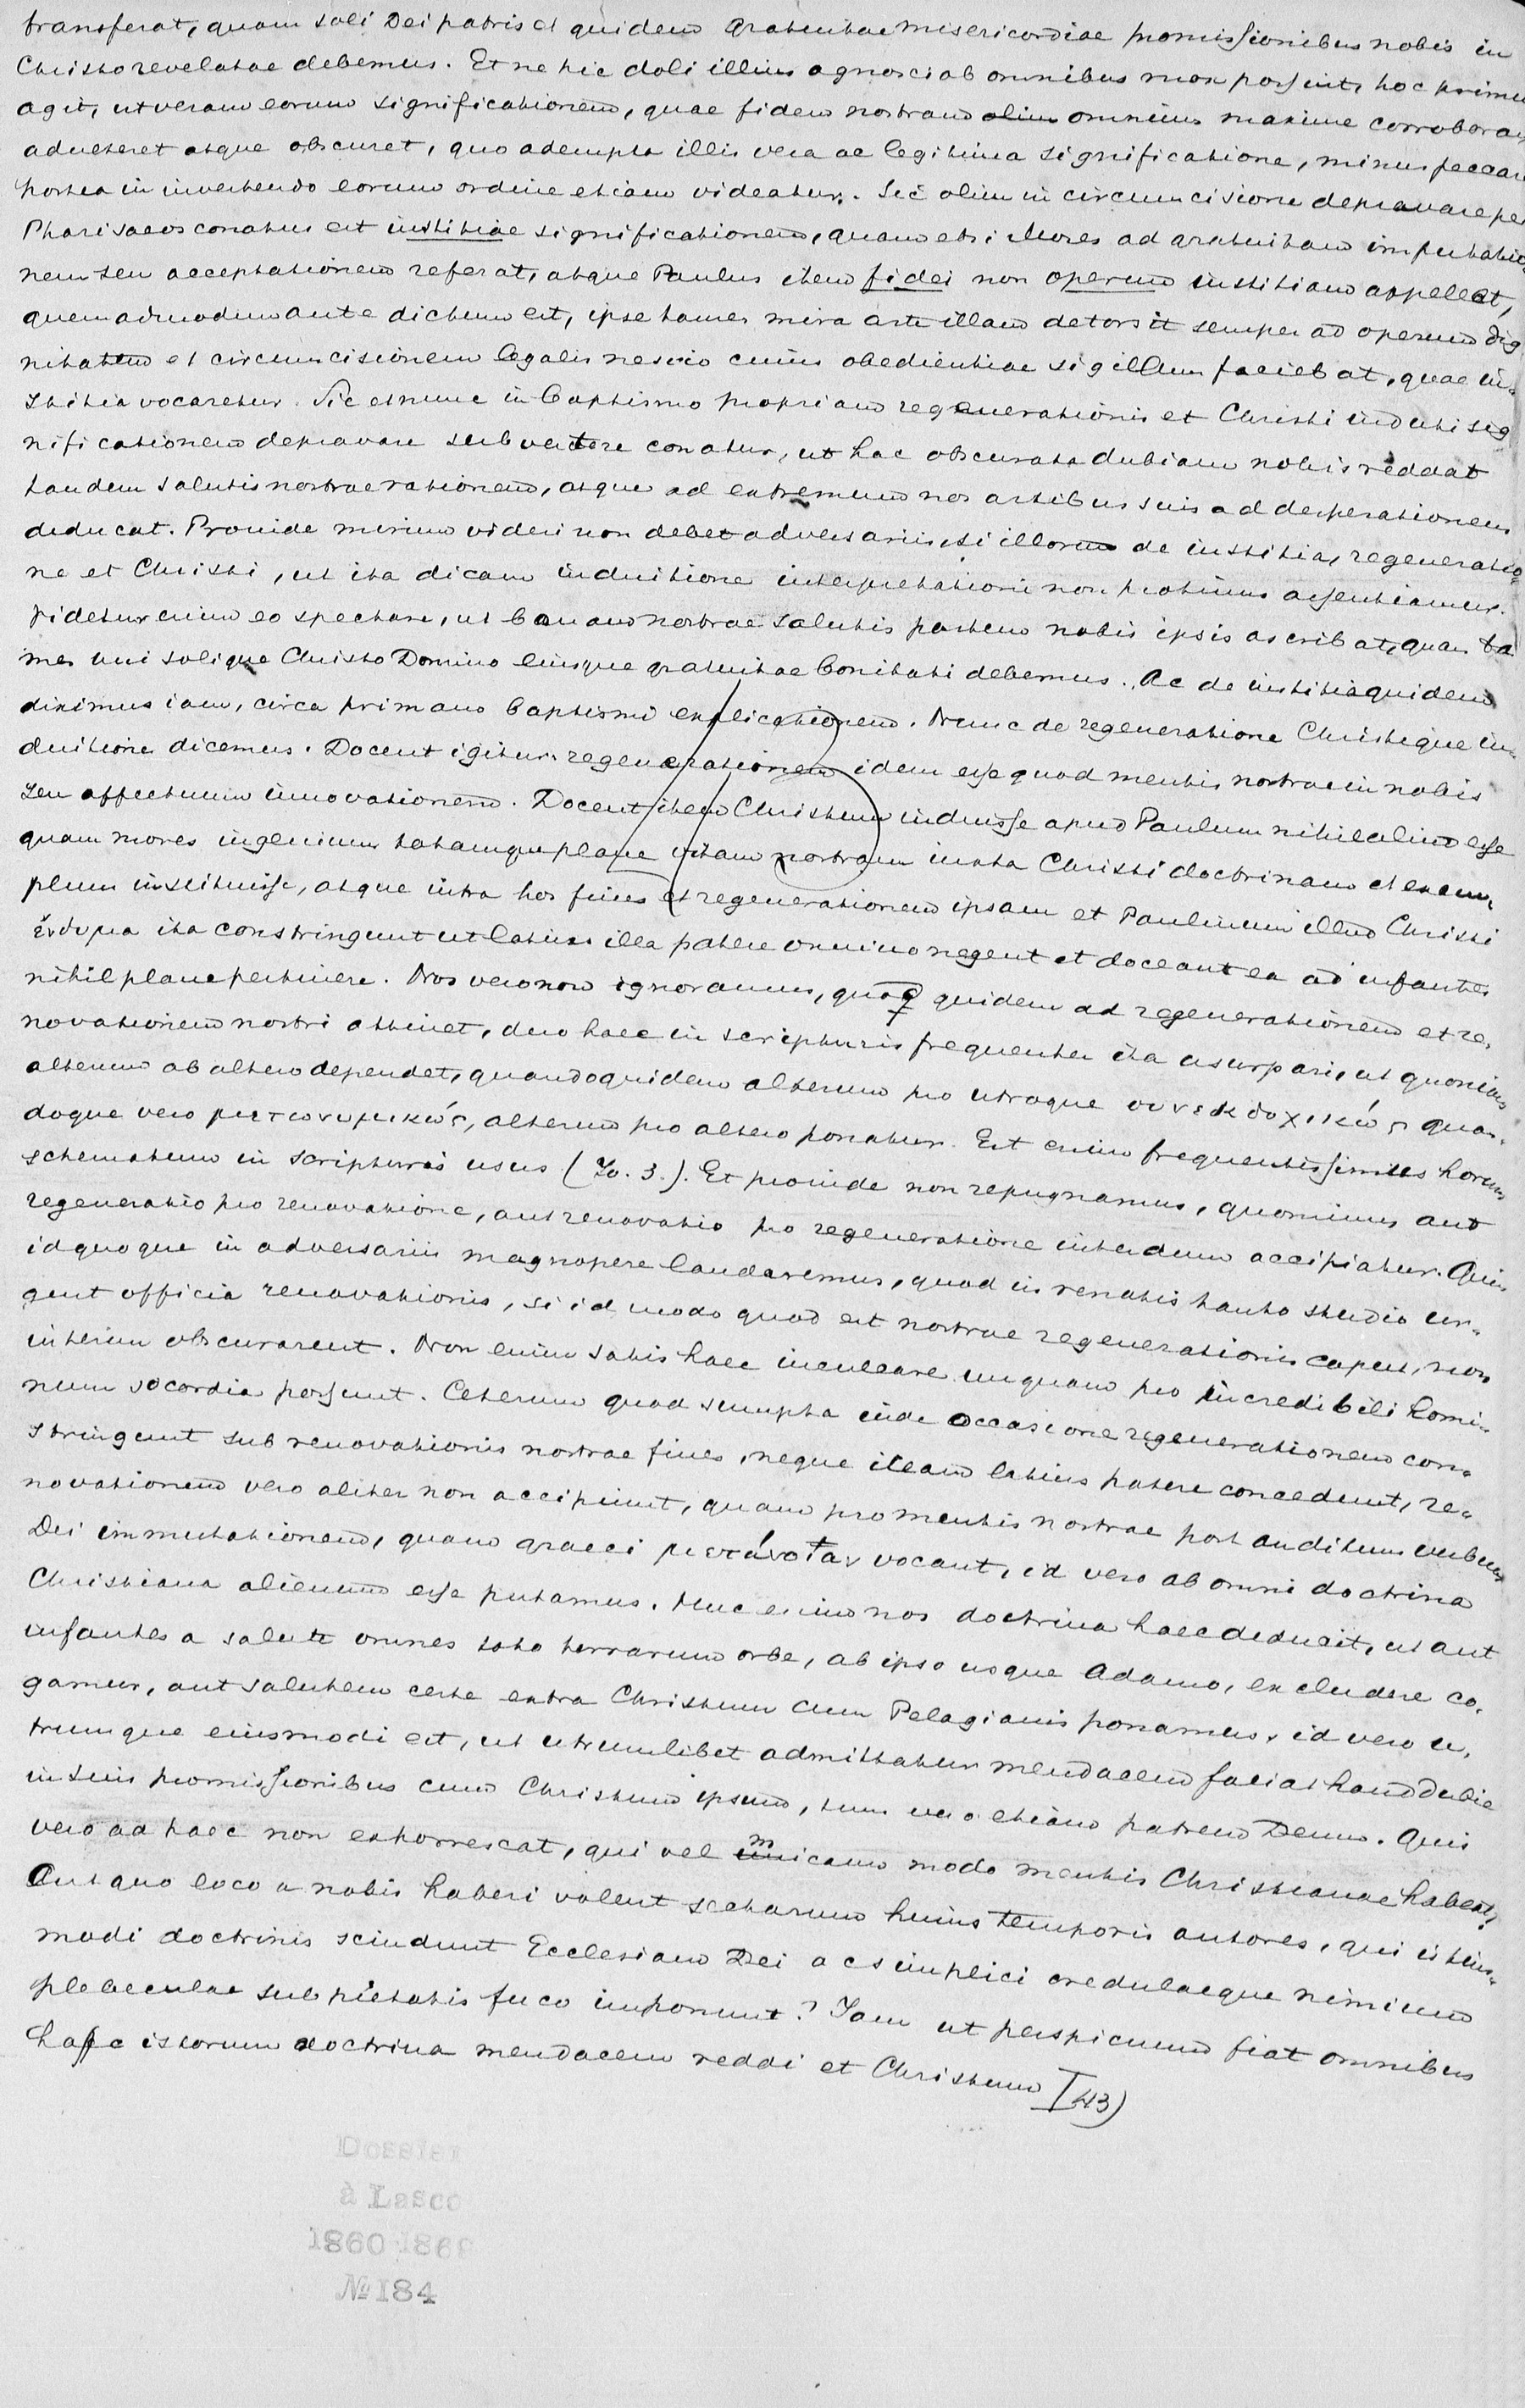 transferat, quam soli Dei patris et quidem gratuitae misericordiae promissionibus nobis in
Christo revelatae debemus. Et ne hic doli illius agnosci ab omnibus mox possint, hoc primu
agit, ut veram eorum significationem, quae fidem nostram olim omnium maxime corroboran
adulteret atque obscuret, quo adempta illis vera ac legitima significatione, minus peccare
postea in invertendo eorum ordine etiam videatur. Sic olim in circumcisione depravare per
Pharisaeos conatus est iustitiae significationem, quam etsi Moses ad gratuitam imputatio-
nem seu acceptationem referat, atque Paulus item fidei non operum iustitiam appellat,
quemadmodum ante dictum est, ipse tamen mira arte illam detorsit semper ad operum dig
nitatem et circumcisionem legalis nescio cuius obedientiae sigillum faciebat, quae iu-
stitia vocaretur. Sic et nunc in baptismo propriam regenerationis et Christi induti sig
nificationem depravare subvertere conatur, ut hac obscurata dubiam nobis reddat
tandem salutis nostrae rationem, atque ad extremum nos artibus suis ad desperationem
deducat. Proinde mirum videri non debet adversariis, si illorum de iustitia, regeneratio-
ne et Christi, ut ita dicam induitione interpretationi non protinus assentiamur.
Videtur enim eo spectare, ut bonam nostrae salutis partem nobis ipsis ascribat, quam ta
men uni solique Christo Domino eiusque gratuitae bonitati debemus. Ac de iustitia quidem
diximus iam, circa primam baptismi explicationem. Nunc de regeneratione Christique in-
duitione dicemus. Docent igitur regenerationem idem esse quod mentis nostrae in nobis
seu affectuum innovationem. Docent item Christum induisse apud Paulum nihil aliud esse
quam mores ingenium totamque plane vitam nostram iuxta Christi doctrinam et exem-
plum instituisse, atque intra hos fines et regenerationem ipsam et Paulinum illud Christi
ἔνδυμα ita constringunt ut latius illa patere omnino negent et doceant ea ad infantes
nihil plane pertinere. Nos vero non ignoramus, quod quidem ad regenerationem et re-
novationem nostri attinet, duo haec in scripturis frequenter ita usurpari, ut quoniam
alterum ab altero dependet, quandoquidem alterum pro utroque συνεκδοχικώς quan-
doque vero μετωνυμικώς, alterum pro altero ponatur. Est enim frequentissimus horum
schematum in scripturis usus (Jo. 3.). Et proinde non repugnamus, quominus aut
regeneratio pro renovatione, aut renovatio pro regeneratione interdum accipiatur. Quin
id quoque in adversariis magnopere laudaremus, quod in renatis tanto studio ur-
gent officia renovationis, si id modo quod est nostrae regenerationis caput, non
interim obscurarent. Non enim satis haec inculcare unquam pro incredibili homi-
num socordia possunt. Ceterum quod sumpta inde occasione regenerationem con-
stringunt sub renovationis nostrae fines, neque illam latius patere concedunt, re-
novationem vero aliter non accipiunt, quam pro mentis nostrae post auditum verbum
Dei immutationem, quam graeci μετάνοιαν vocant, id vero ab omni doctrina
Christiana alienum esse putamus. Huc enim nos doctrina haec deducit, ut aut
infantes a salute omnes toto terrarum orbe, ab ipso usque Adamo, excludere co-
gamur, aut salutem certe extra Christum cum Pelagianis ponamus, id vero u-
trumque eiusmodi est, ut utrumlibet admittatur mendacem faciat haud dubie
in suis promissionibus cum Christum ipsum, tum vero etiam patrem Deum. Quis
vero ad haec non exhorrescat, qui vel micam modo mentis Christianae habeat?
Aut quo loco a nobis haberi volent sectarum huius temporis autores, qui istius-
modi doctrinis scindunt Ecclesiam Dei ac simplici credulaeque nimium
plebeculae sub pietatis fuco imponunt? Jam ut perspicuum fiat omnibus
hac istorum doctrina mendacem reddi et Christum I 43)
Dossier
à Lasco
1860 1869
№ 184